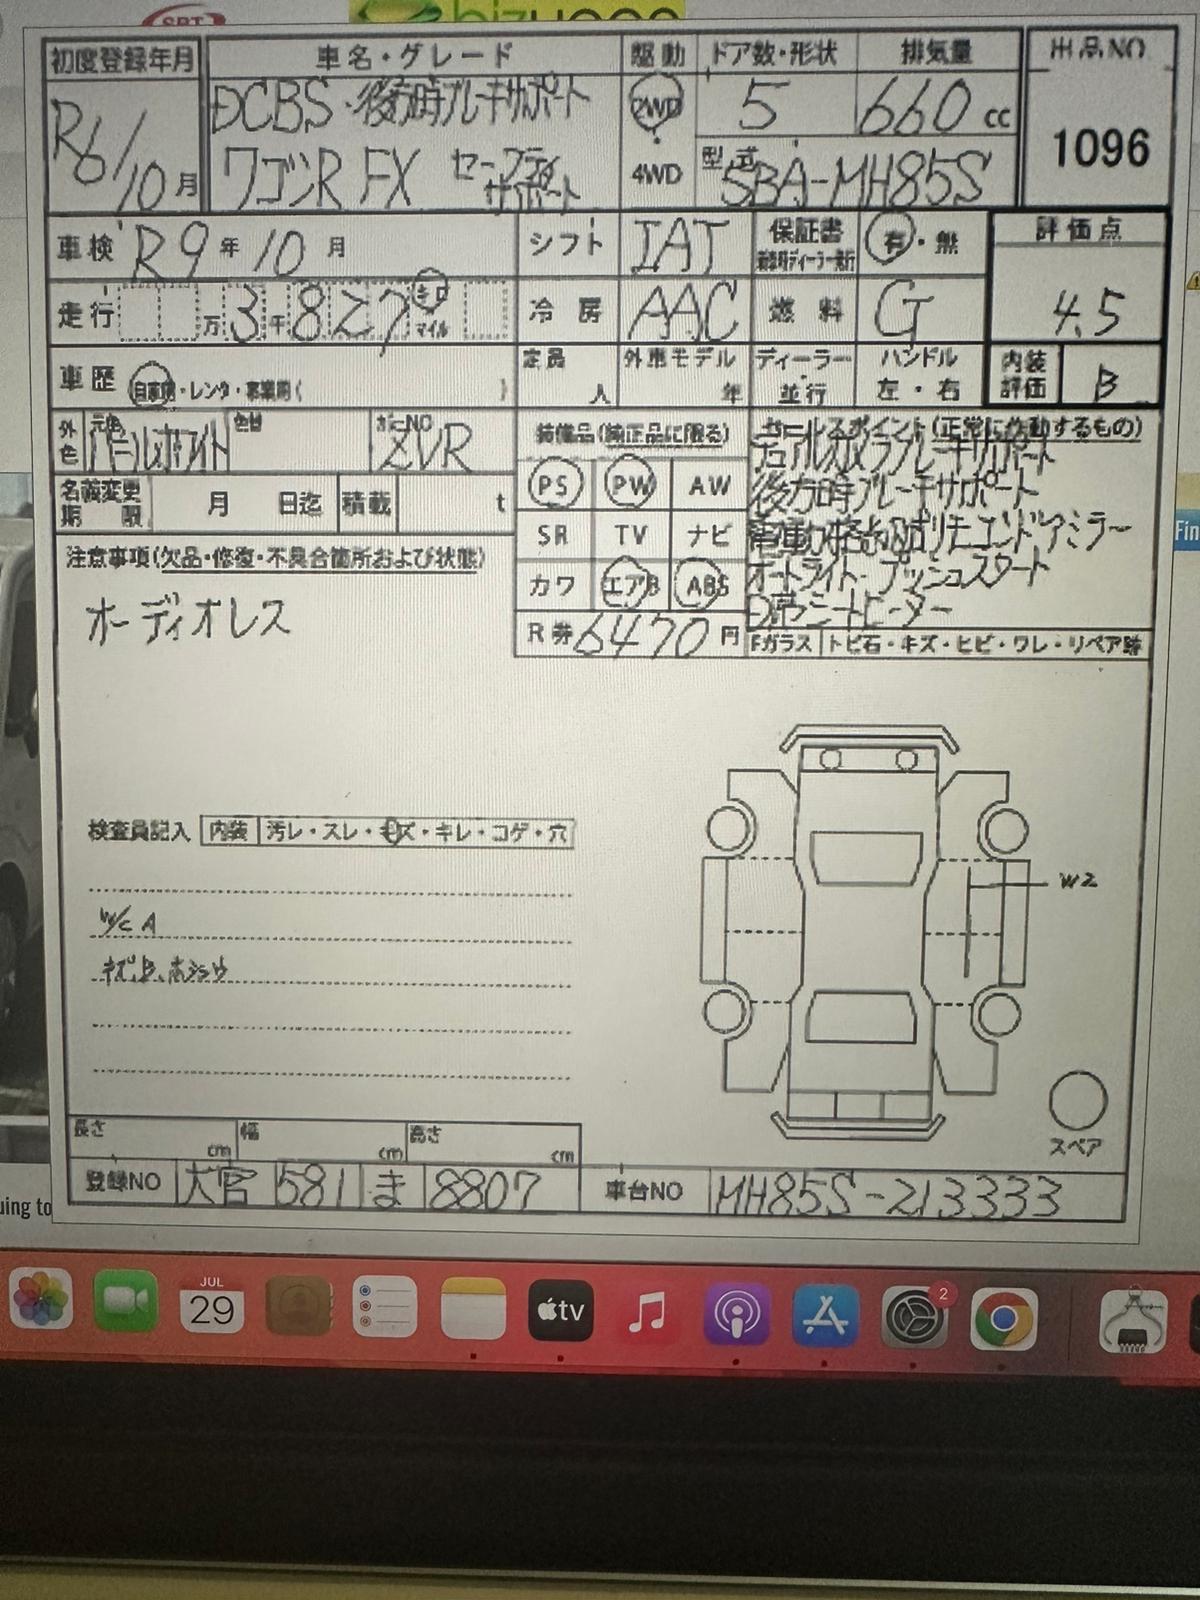 SBT
初度登録年月
車名・グレード
駆動
ドア数・形状
排気量
出品NO.
R6/10月
DCBS・後方時ブレーキサポート
ワゴンR FX セーフティサポート
2WD
4WD
5
660 cc
型式
5BA-MH85S
1096
車検 R9年10月
シフト IAT
保証書
有・無
評価点
4.5
走行 万3千827 キロ マイル
冷房 AAC
燃料 G
車歴 自家用・レンタ・事業用( )
定員 人
外車モデル 年
ディーラー・並行
ハンドル
左・右
内装評価 B
外色
元色
パールホワイト
色替
カラーNO
ZVR
装備品(純正品に限る)
セールスポイント(正常に作動するもの)
デュアルカメラブレーキサポート
後方時ブレーキサポート
電動格納リモコンドアミラー
オートライト・プッシュスタート
D席シートヒーター
PS PW AW
SR TV ナビ
カワ エアB ABS
名義変更期限 月 日迄
積載 t
R券 6470円
Fガラス トビ石・キズ・ヒビ・ワレ・リペア跡
注意事項(欠品・修復・不具合箇所および状態)
オーディオレス
検査員記入 内装 汚レ・スレ・キズ・キレ・コゲ・穴
W/C A
W2
スペア
長さ cm
幅 cm
高さ cm
登録NO 大宮 581 ま 8807
車台NO MH85S-213333
Fin
uing to
JUL
29
tv
2